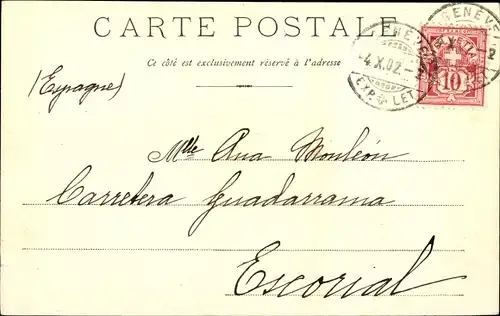 CARTE POSTALE
Ce côté est exclusivement réservé à l'adresse
GENÈVE
-4.X.02.-
EXP. LET.
10
(Espagne)
Mlle Ana Monleón
Carretera Guadarrama
Escorial